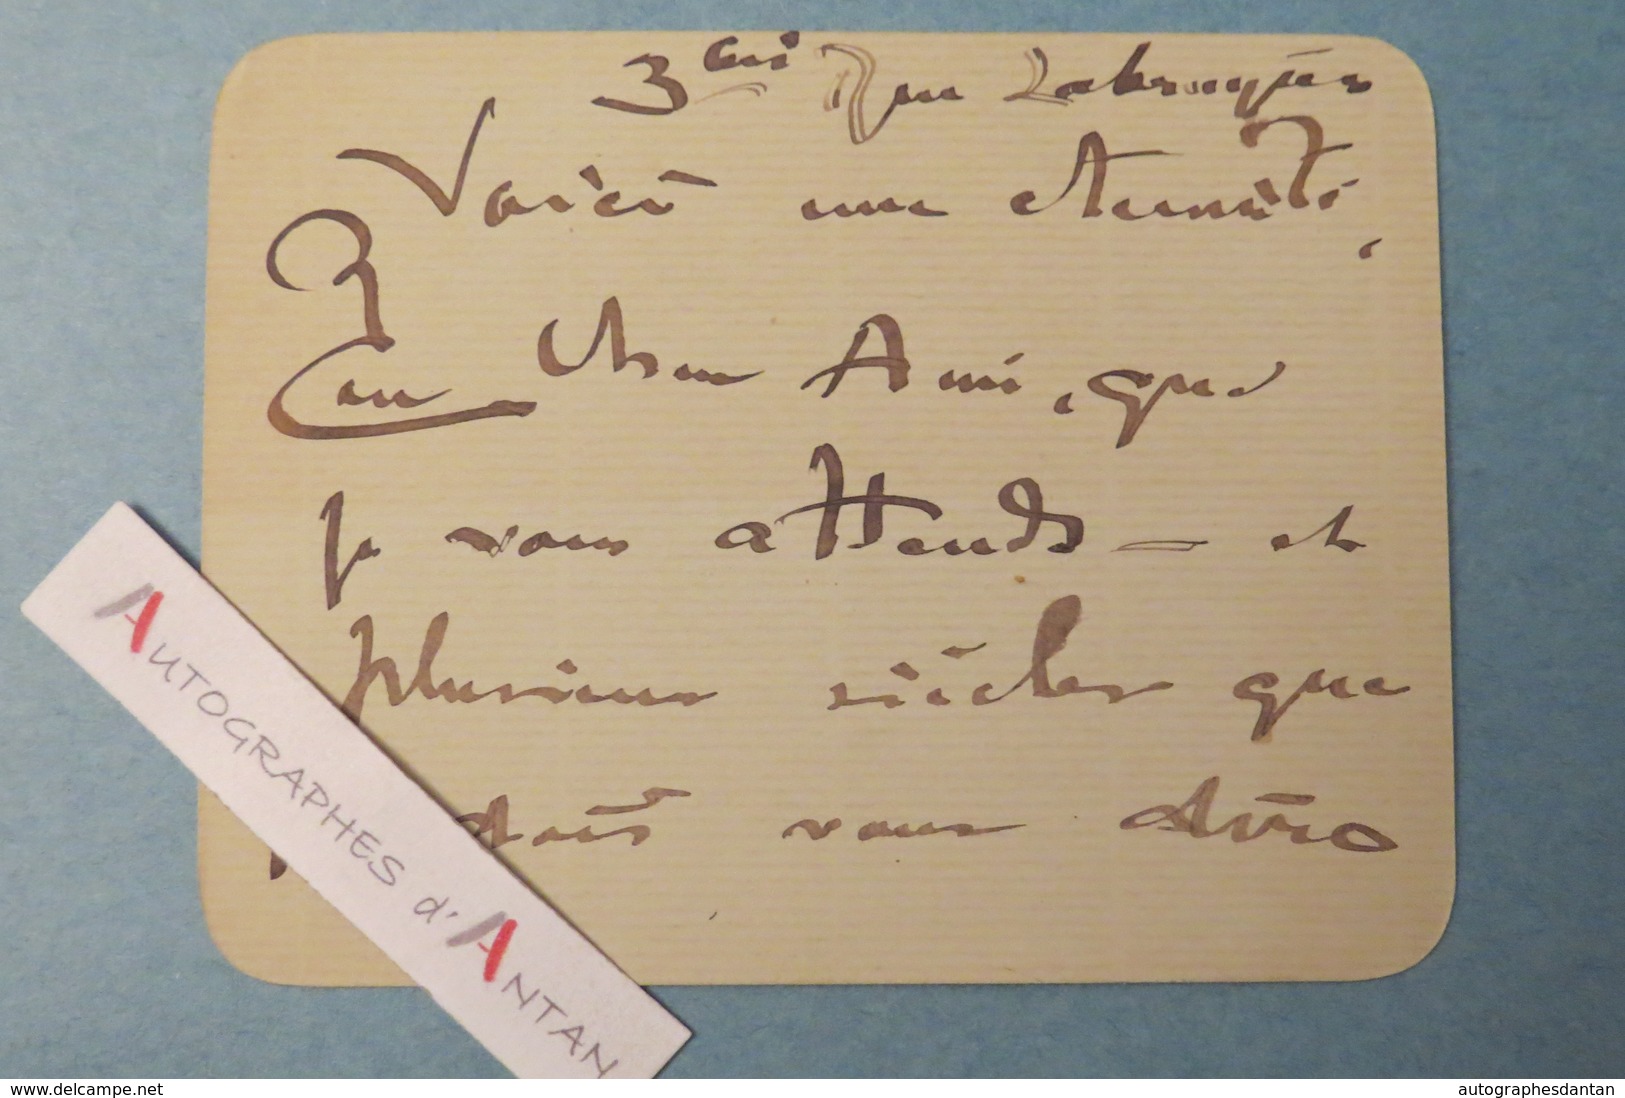 3 bis Rue Labruyère
Voici une éternité,
mon cher Ami, que
je vous attends — et
plusieurs siècles que
dois vous dire
AUTOGRAPHES d'ANTAN
www.delcampe.net
autographesdantan